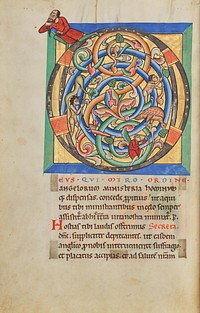 EVS QVI MIRO ORDINE
ANGELORVM MINISTERIA HOMINVM
q; dispensas. concede propitius ut aqui
bus tibi ministrantibus in celo semper
assistitur ab his in terra uita nostra muniatur. p
Hostias tibi laudis offerimus SECRETA
dne. suppliciter deprecantes. ut easdem
anglico p nobis interueniente suffragio.
et placatus accipias. et ad salutem